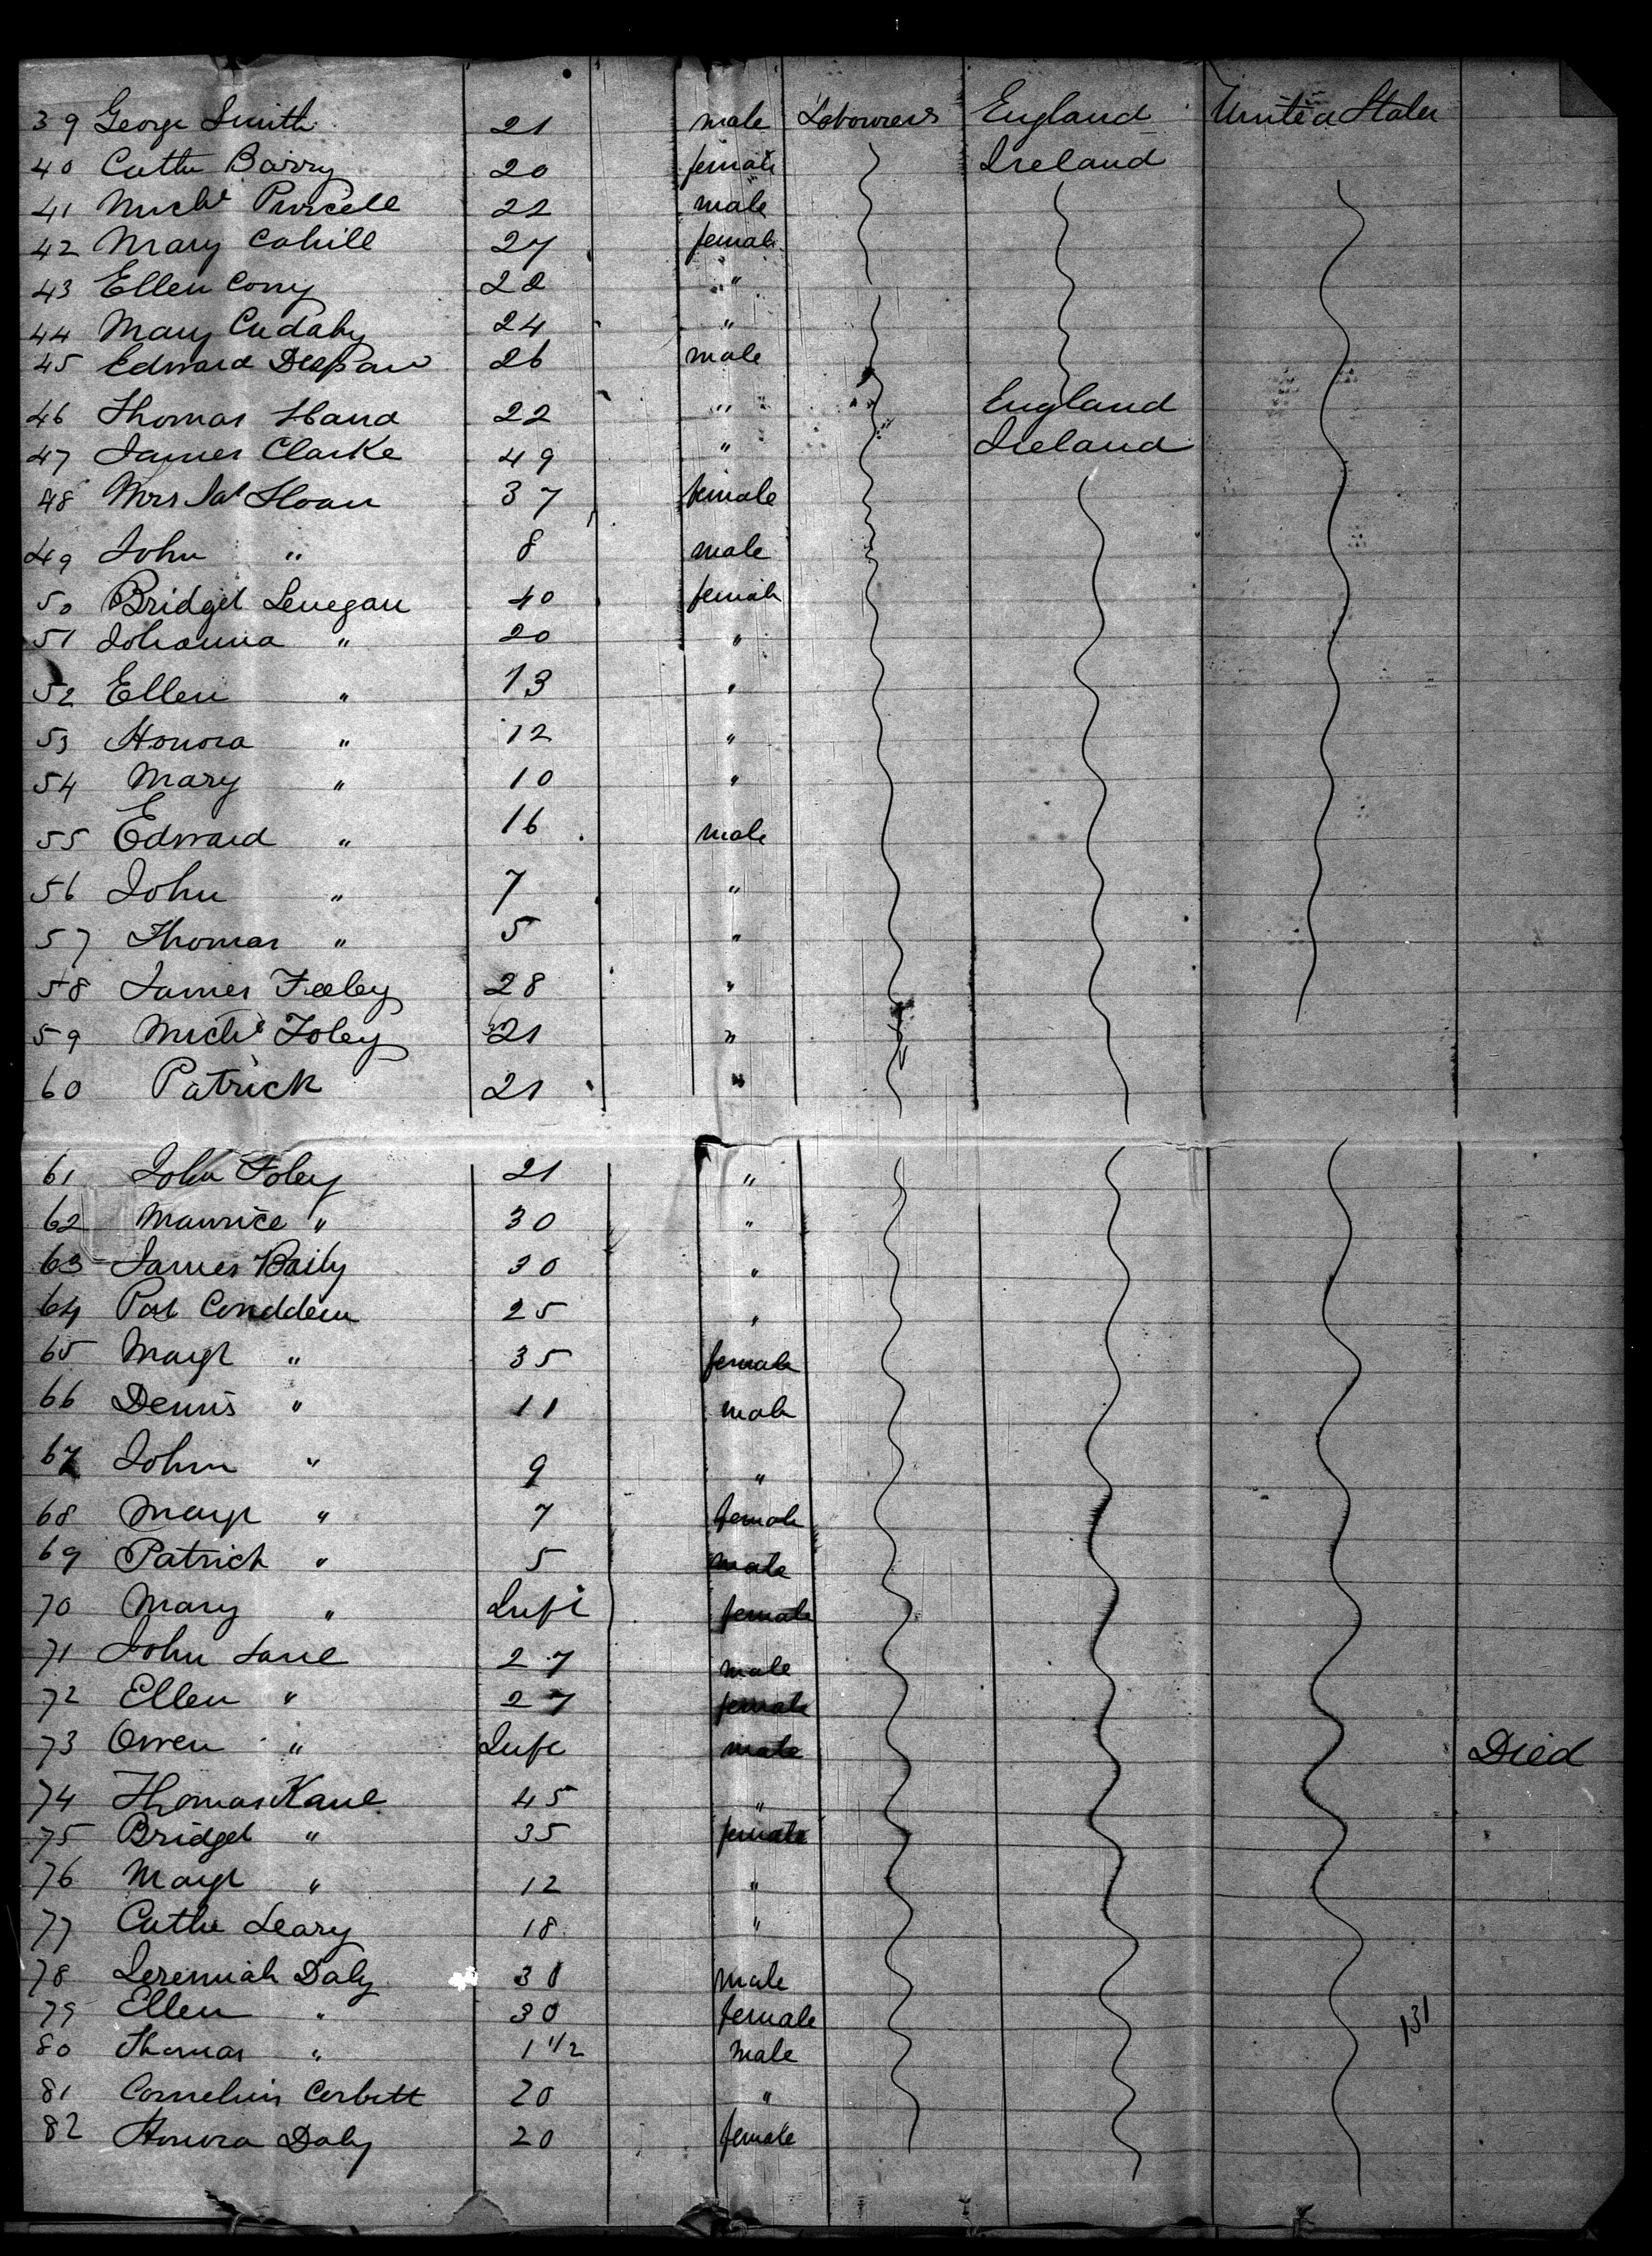 39 George Smith 21 male Labourers England United States
40 Cathe Barry 20 female Ireland
41 Michl Purcell 22 male
42 Mary Cahill 27 female
43 Ellen Cony 28 "
44 Mary Cudahy 24 "
45 Edward 26 male
46 Thomas Hand 22 " England
47 James Clarke 49 " Ireland
48 Mrs Sloan 37 female
49 John " 8 male
50 Bridget Lenegan 40 female
51 Johanna " 20 "
52 Ellen " 13 "
53 Honora " 12 "
54 Mary " 10 "
55 Edward " 16 male
56 John " 7 "
57 Thomas " 5 "
58 James Feeley 28 "
59 Michl Foley 21 "
60 Patrick 21 "
61 John Foley 21 "
62 Maurice " 30 "
63 James Baily 30 "
64 Pat Conddem 25 "
65 Margt " 35 female
66 Dennis " 11 male
67 John " 9 "
68 Margt " 7 female
69 Patrick " 5 male
70 Mary " Inft female
71 John Lane 27 male
72 Ellen " 27 female
73 Owen " Inft male Died
74 Thomas Kane 45 "
75 Bridget " 35 female
76 Margt " 12 "
77 Cathe Leary 18 "
78 Jeremiah Daly 30 male
79 Ellen " 30 female
131
80 Thomas " 1 1/2 male
81 Cornelius Corbett 20 "
82 Honora Daly 20 female